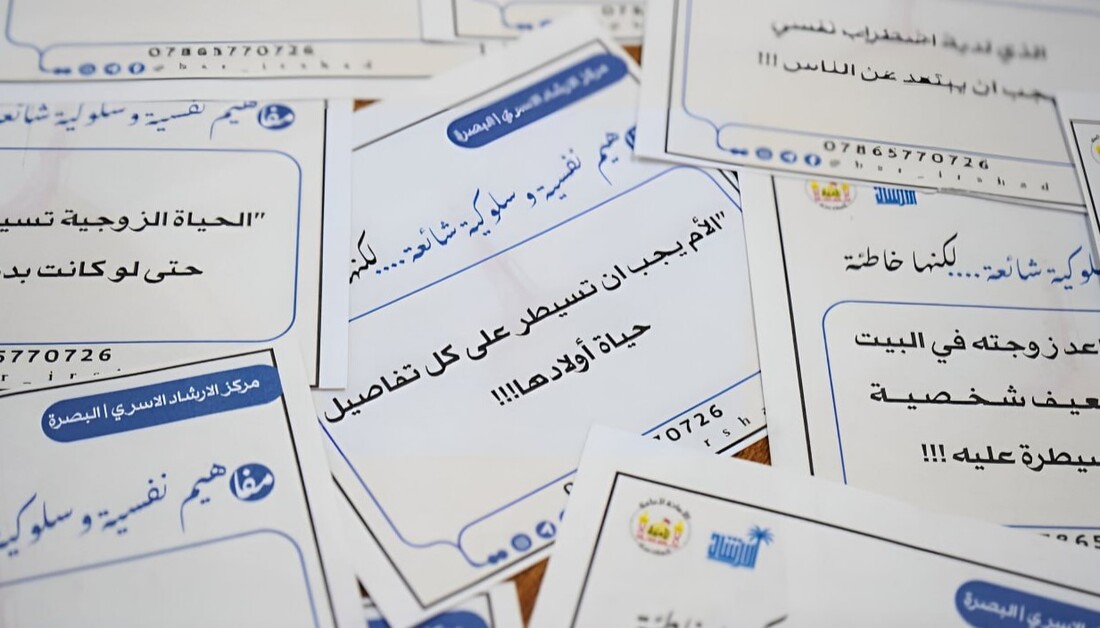 07865770726
@bar_irshad
الذي لدية اضطراب نفسي
يجب ان يبتعد عن الناس !!!
07865770726
@bar_irshad
مفاهيم نفسية و سلوكية شائعة
"الحياة الزوجية
حتى لو كانت
5770726
مركز الارشاد الاسري | البصرة
هيم نفسية و سلوكية شائعة....لكنها
"الأم يجب ان تسيطر على كل تفاصيل
حياة أولادها!!!
70726
الارشاد
لوكية شائعة....لكنها خاطئة
زوجته في البيت
شخصية
عليه !!!
مركز الارشاد الاسري | البصرة
مفاهيم نفسية و سلوكية
الارشاد
الاسري | البصرة